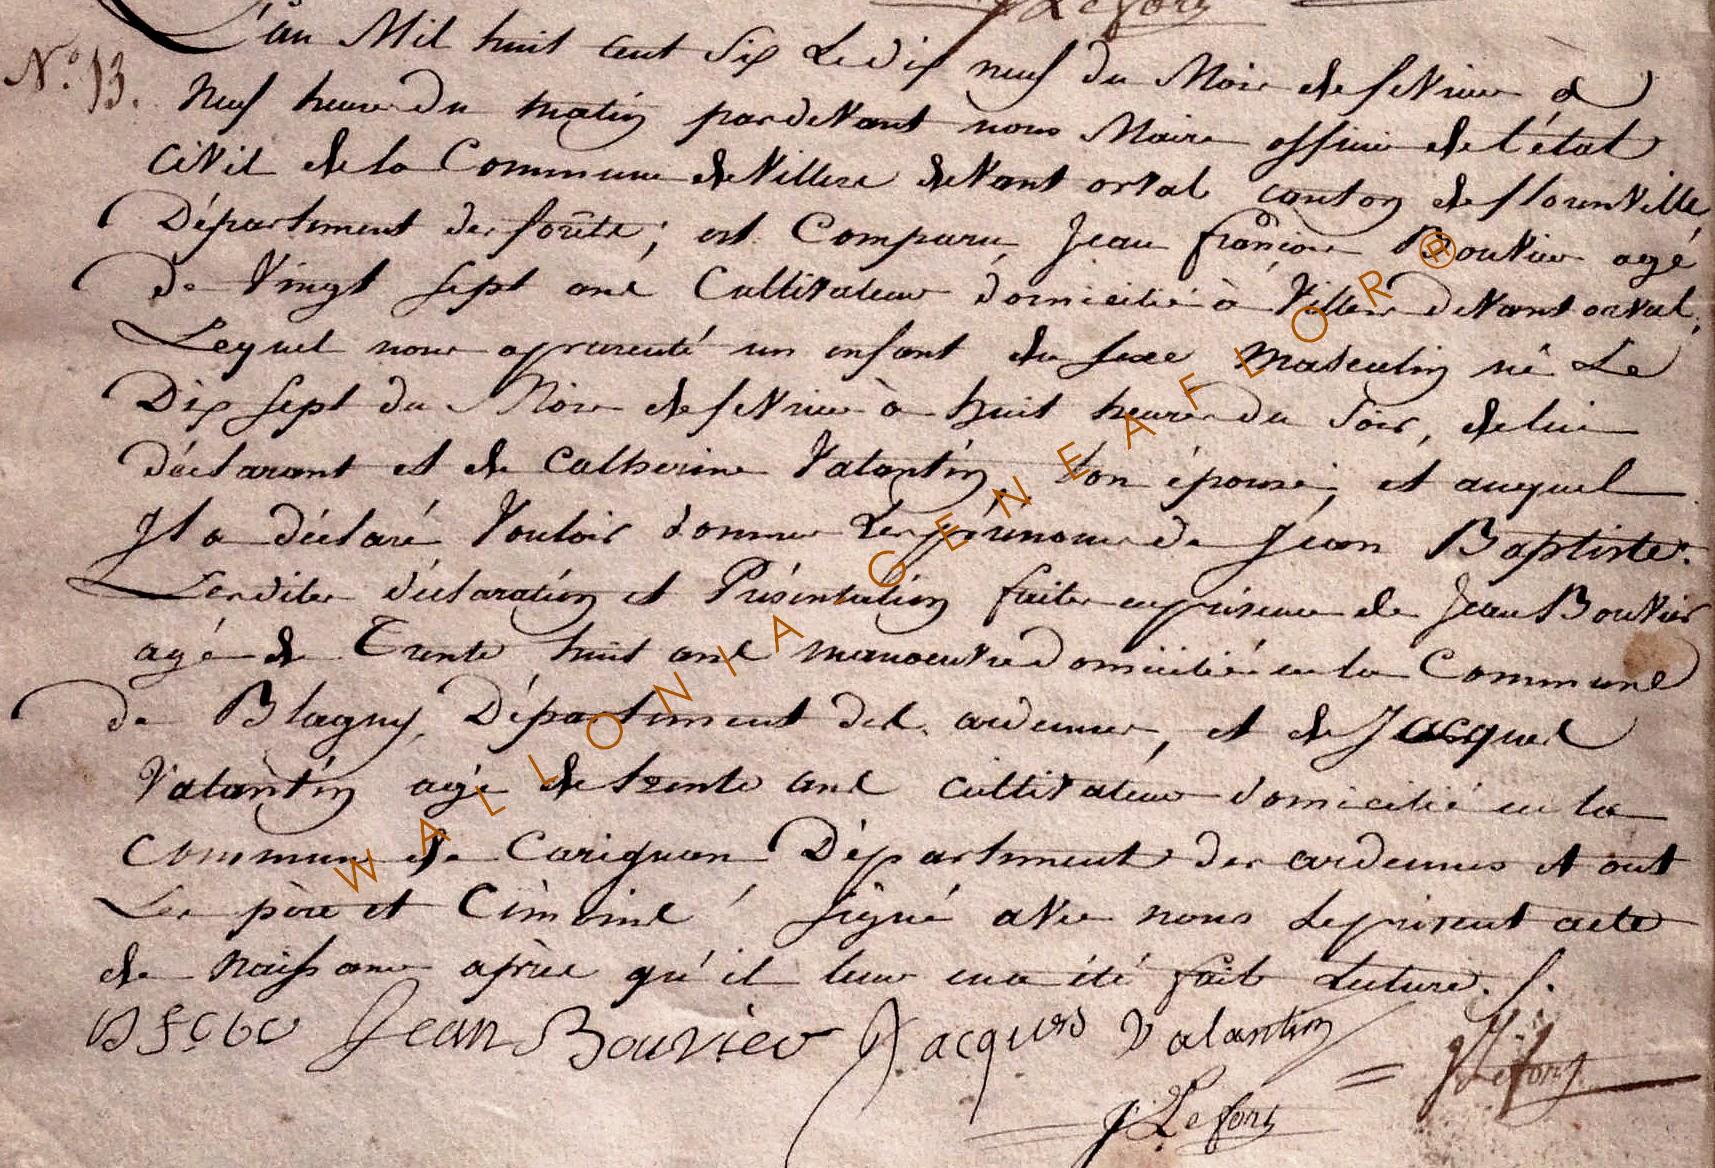 J Lefort
L'an Mil huit cent Six Le dix neuf du Mois de fevrier à
N.° 13. Neuf heures du matin pardevant nous Maire officier de l'état
civil de la Commune de Villers devant orval canton de florenville
Département des forêts; est Comparu Jean françois Bouvier agé
de Vingt sept ans Cultivateur domicilié à Villers devant orval;
Lequel nous a presenté un enfant du sexe masculin né Le
Dix sept du Mois de fevrier à huit heures du Soir, de lui
déclarant et de Catherine Valantin, Son épouse, et auquel
Il a déclaré Vouloir donner Les prénoms de Jean Baptiste.
Lesdites déclaration et Présentation faites en présence de Jean Bouvier
agé de Trente huit ans manoeuvre domicilié en la Commune
de Blagny, Département des ardennes, et de Jacques
Valantin agé de trente ans cultivateur domicilié en la
Commune de Carignan Département des ardennes et ont
Les père et témoins signé avec nous Le présent acte
de Naissance après qu'il leur en a été fait Lecture. /.
Jean Bouvier Jacques Valantin
J Lefort
J Lefort
WALLONIA GENEAFLOR®